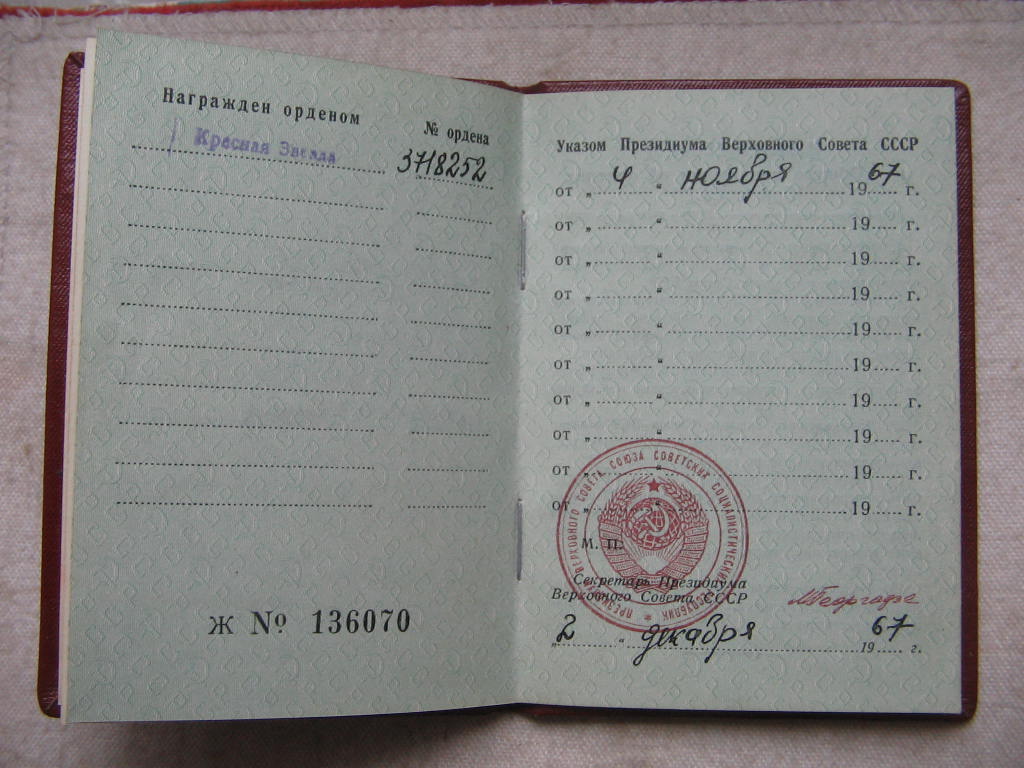 Награжден орденом
№ ордена
Красная Звезда 3718252
Ж № 136070
Указом Президиума Верховного Совета СССР
от „ 4 “ ноября 1967 г.
от „ “ 19 г.
от „ “ 19 г.
от „ “ 19 г.
от „ “ 19 г.
от „ “ 19 г.
от „ “ 19 г.
от „ “ 19 г.
от „ “ 19 г.
от „ “ 19 г.
М. П.
ПРЕЗИДИУМ ВЕРХОВНОГО СОВЕТА СОЮЗА СОВЕТСКИХ СОЦИАЛИСТИЧЕСКИХ РЕСПУБЛИК
Секретарь Президиума
Верховного Совета СССР
МГеоргадзе
„ 2 “ декабря 1967 г.